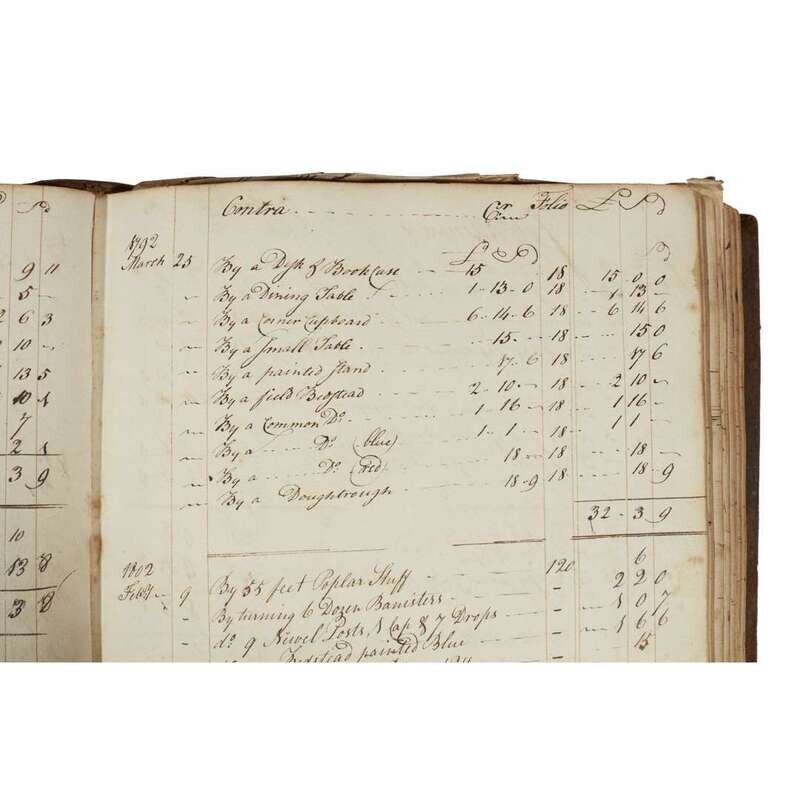 9 11
5 -
6 3
10 -
13 5
10 1
7
2 1
3 9
10
13 8
3 8
Contra Cr Folio £ S d
1792 £ S d
March 25 By a Desk & Bookcase 15 18 15 0 0
By a Dining Table 1-13-0 18 1 13 -
By a Corner Cupboard 6-14-6 18 6 14 6
By a Small Table 15 18 15 0
By a painted Stand 17 6 18 17 6
By a field Bedstead 2-10 18 2 10 -
By a Common Do 1 16 18 1 16 -
By a Do (blue) 1-1 18 1 1 -
By a Do (red) 18 18 18 -
By a Doughtrough 18-9 18 18 9
32-3 9
1802
Feby 9 By 55 feet Poplar Stuff 120 6
By turning 6 Dozen Banisters 2 2 0
do 9 Newel Posts, 1 Cap & 7 Drops 1 0 7
Bedstead painted Blue 1 6 6
15